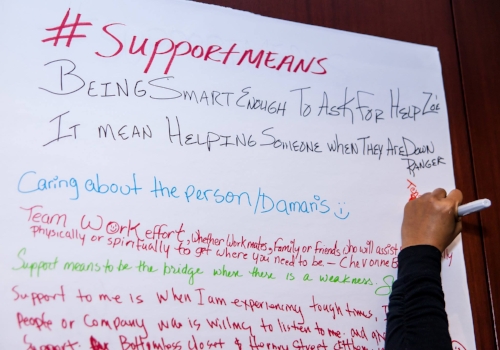 #SUPPORTMEANS
BEING SMART ENOUGH TO ASK FOR HELP Zoe
IT MEAN HELPING SOMEONE WHEN THEY ARE DOWN
RANGER
Caring about the person/Damaris
Team Work effort, whether workmates, family or friends who will assist
physically or spiritually to get where you need to be - Chevonne
Support means to be the bridge where there is a weakness.
Support to me is when I am experiencing tough times,
people or company who is willing to listen to me. and
support. Bottomless closet &